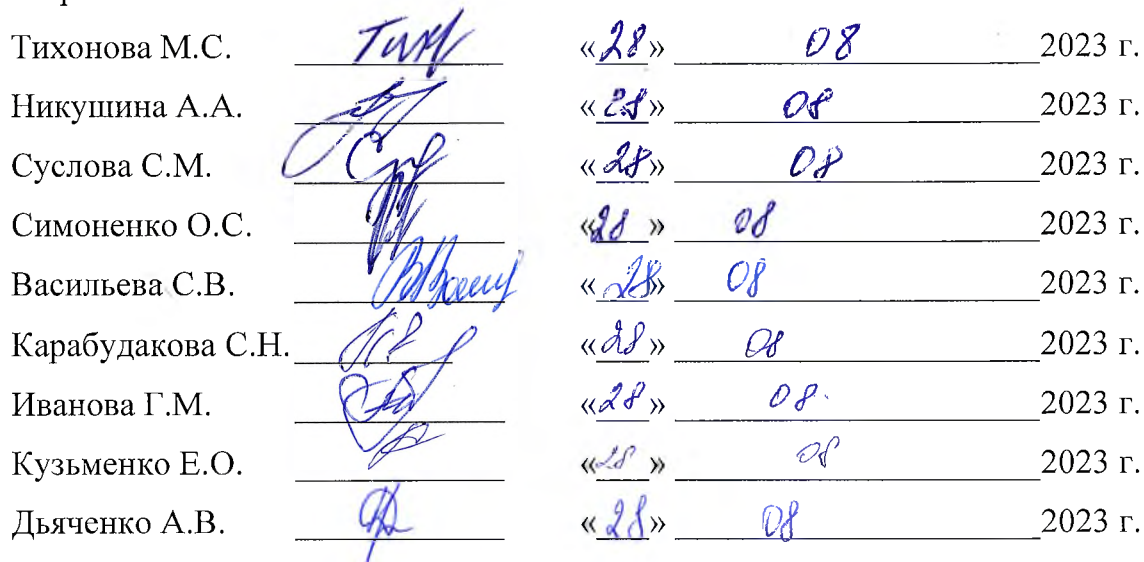 Тихонова М.С. «28» 08 2023 г.
Никушина А.А. «28» 08 2023 г.
Суслова С.М. «28» 08 2023 г.
Симоненко О.С. «28 » 08 2023 г.
Васильева С.В. « 28» 08 2023 г.
Карабудакова С.Н. «28» 08 2023 г.
Иванова Г.М. «28» 08. 2023 г.
Кузьменко Е.О. «28 » 08 2023 г.
Дьяченко А.В. « 28» 08 2023 г.